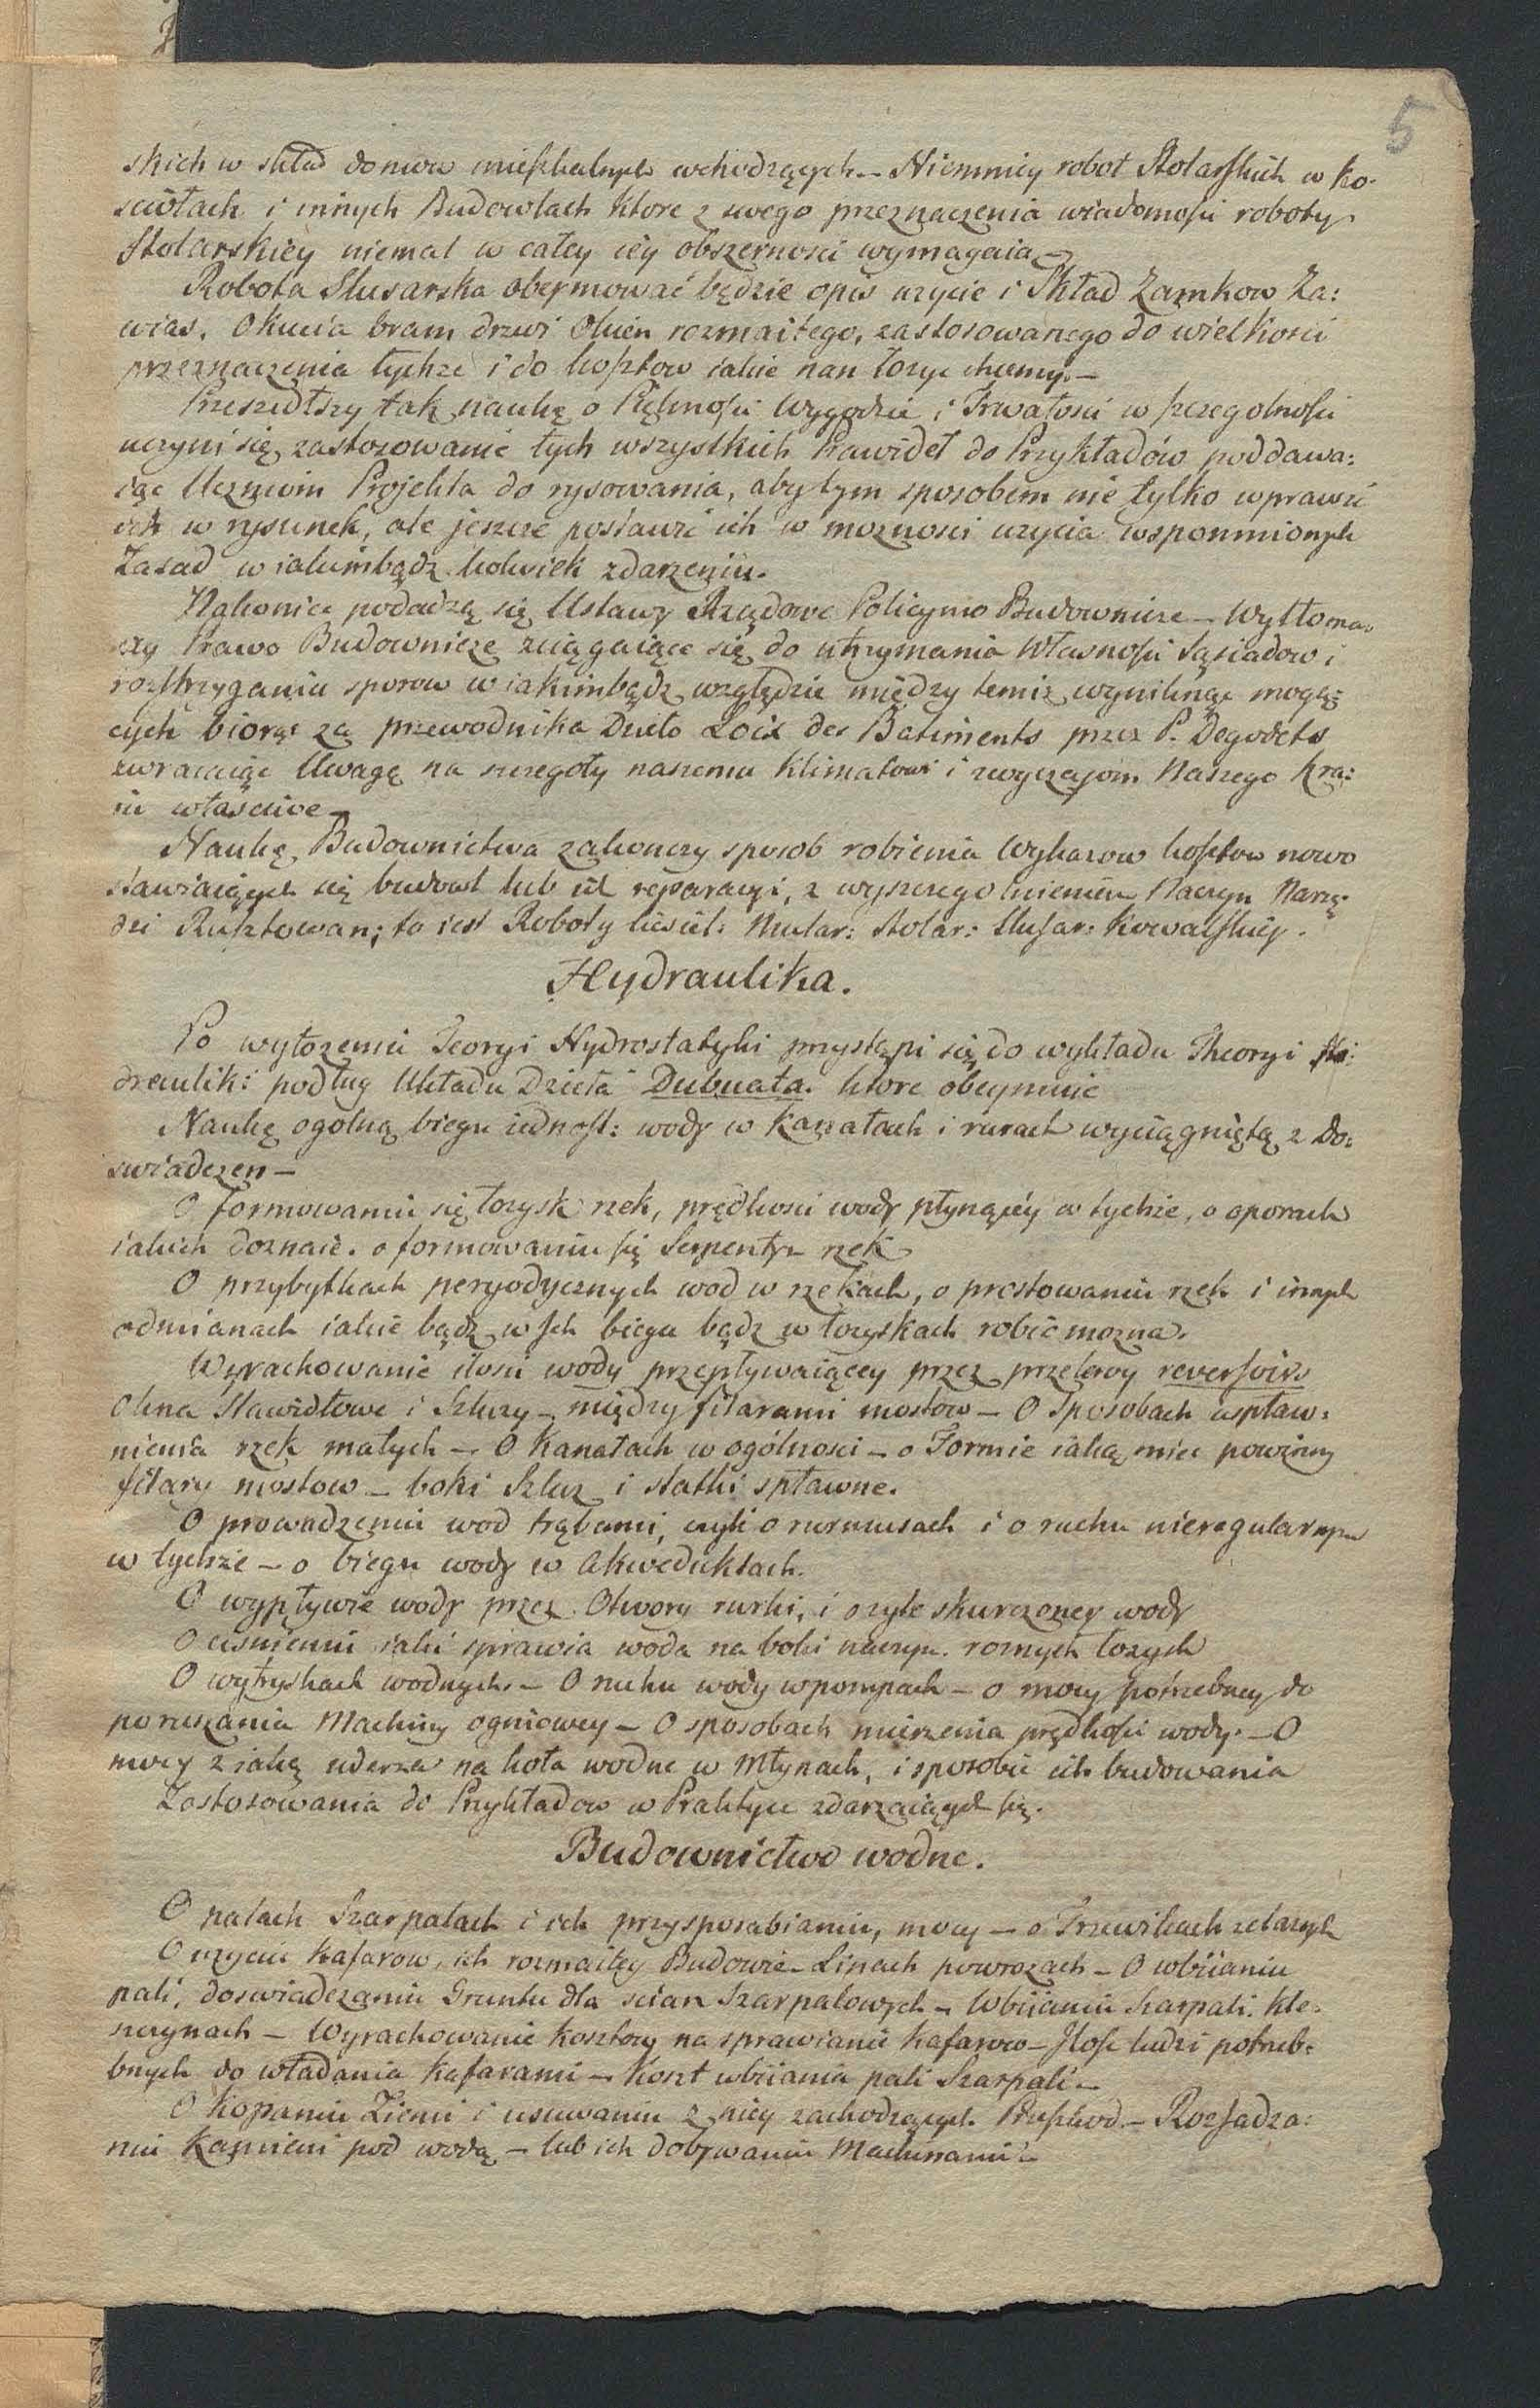 5
skich w skład domow mieszkalnych wchodzących – Niemniey robot Stolarskich w Ko-
sciołach i innych Budowlach ktore z swego przeznaczenia wiadomosci roboty
Stolarskiey niemal w całey iey obszernosci wymagaia –
Robota Slusarska obeymować będzie opis uzycie i Skład Zamkow Za:
wias, Okucia bram drzwi Okien rozmaitego, zastosowanego do wielkosci
przeznaczenia tychze i do kosztow iakie nan łozyc chcemy. –
Przeszedłszy tak naukę o Pięknosci Wygodzie i Trwałosci w szczegolnosci
uczyni się zastosowanie tych wszystkich Prawideł do Przykładów poddawa:
iąc Uczniom Projekta do rysowania, aby tym sposobem nie tylko wprawić
ich w rysunek, ale jeszcze postawić ich w moznosci uzycia wspomnionych
Zasad w iakimbądz kolwiek zdarzeniu.
Nakoniec podadzą się Ustawy Rządowe Policyino Budownicze – Wytłoma-
czy Prawo Budownicze sciągaiące się do utrzymania Własnosci Sąsiadow i
rozstrzygania sporow w iakimbądz względzie między temiz wyniknąc mogą:
cych biorąc za przewodnika Dzieło Loix des Batiments przez P. Degodets
zwracaiąc Uwagę na szczegoły naszemu Klimatowi i zwyczajom Naszego kra:
iu właściwe –
Naukę Budownictwa zakonczy sposob robienia Wykazow kosztow nowo
stawiaiących się budowl lub ich reparacyi, z wyszczegolnieniem Naczyn Narzę-
dzi Rusztowan; to iest Roboty Ciesiel: Mular: Stolar: Slusar: Kowalskiey.
Hydraulika.
Po wyłozeniu Teoryi Hydrostatyki przystąpi się do wykładu Theoryi Hi:
drauliki podług Układu Dzieła Dubuata. ktore obeymuie
Naukę ogolną biegu iednost: wody w Kanałach i rurach wyciągniętą z Do:
swiadczen –
O formowaniu się łozysk rzek, prędkosci wody płynącéy w tychże, o oporach
iakich doznaie. o formowaniu się Serpentyn rzek
O przybytkach peryodycznych wod w rzekach, o prostowaniu rzek i innych
odmianach iakie bądz w Ich biegu bądz w łozyskach robić mozna.
Wyrachowanie ilosci wody przepływaiącey przez przelewy reversoirs
Okna Stawidłowe i Szluzy – między filarami mostow – O Sposobach uspław:
nienia rzek małych – O Kanałach w ogólnosci – o Formie iaką miec powinny
filary mostow – boki Szluz i statki spławne.
O prowadzeniu wod trąbami, czyli o rurmusach i o ruchu nieregularnym
w tychże – o biegu wody w akweduktach.
O wypływie wody przez Otwory rurki, i o zyle skurczoney wody
O cisnieniu iaki sprawia woda na boki naczyn. roznych łozysk
O wytryskach wodnych. – O ruchu wody w pompach – o mocy potrzebney do
poruszania Machiny ogniowey – O sposobach mierzenia prędkosci wody. – O
mocy z iaką uderza na koła wodne w Młynach, i sposobie ich budowania
Zastosowania do Przykładow w Praktyce zdarzaiących się.
Budownictwo wodne.
O palach Szarpalach i ich przysposabianiu, mocy – o Trzewikach zelaznych
O uzyciu Kafarow, ich rozmaitey Budowie – Linach powrozach – O wbiianiu
pali, doswiadczaniu Gruntu dla scian Szarpalowych – Wbiianiu Szarpali. Kle-
szczynach – Wyrachowanie kosztow na sprawianie Kafarow – Ilosc ludzi potrzeb-
bnych do władania Kafarami – Koszt wbiiania pali Szarpali –
O Kopaniu Ziemi i usuwaniu z niey zachodzących Przeszkod. – Rozsadza:
niu Kamieni pod wodą – lub ich dobywaniu Machinami –